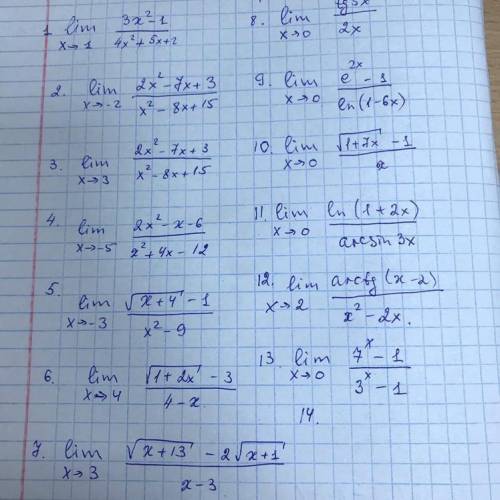 1. lim x→1 (3x²-1)/(4x²+5x+2)
2. lim x→-2 (2x²-7x+3)/(x²-8x+15)
3. lim x→3 (2x²-7x+3)/(x²-8x+15)
4. lim x→-5 (2x²-x-6)/(x²+4x-12)
5. lim x→-3 (√(x+4) -1)/(x²-9)
6. lim x→4 (√(1+2x) -3)/(4-x)
7. lim x→3 (√(x+13) -2√(x+1))/(x-3)
8. lim x→0 /2x
9. lim x→0 (e²ˣ-1)/ln(1-6x)
10. lim x→0 (√(1+7x) -1)/x
11. lim x→0 ln(1+2x)/arcsin 3x
12. lim x→2 arctg(x-2)/(x²-2x).
13. lim x→0 (7ˣ-1)/(3ˣ-1)
14.